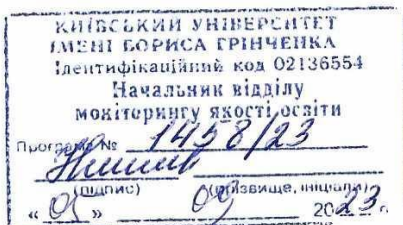 КИЇВСЬКИЙ УНІВЕРСИТЕТ
ІМЕНІ БОРИСА ГРІНЧЕНКА
Ідентифікаційний код 02136554
Начальник відділу
моніторингу якості освіти
Програма № 1458/23
(підпис) (прізвище, ініціали)
« 01 » 09 2023 р.